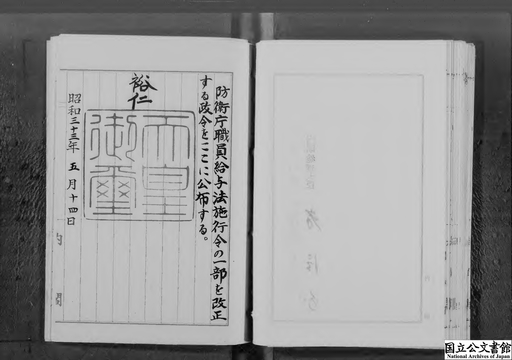 防衛庁職員給与法施行令の一部を改正
する政令をここに公布する。
裕仁
天皇
御璽
昭和三十三年五月十四日
国立公文書館
National Archives of Japan